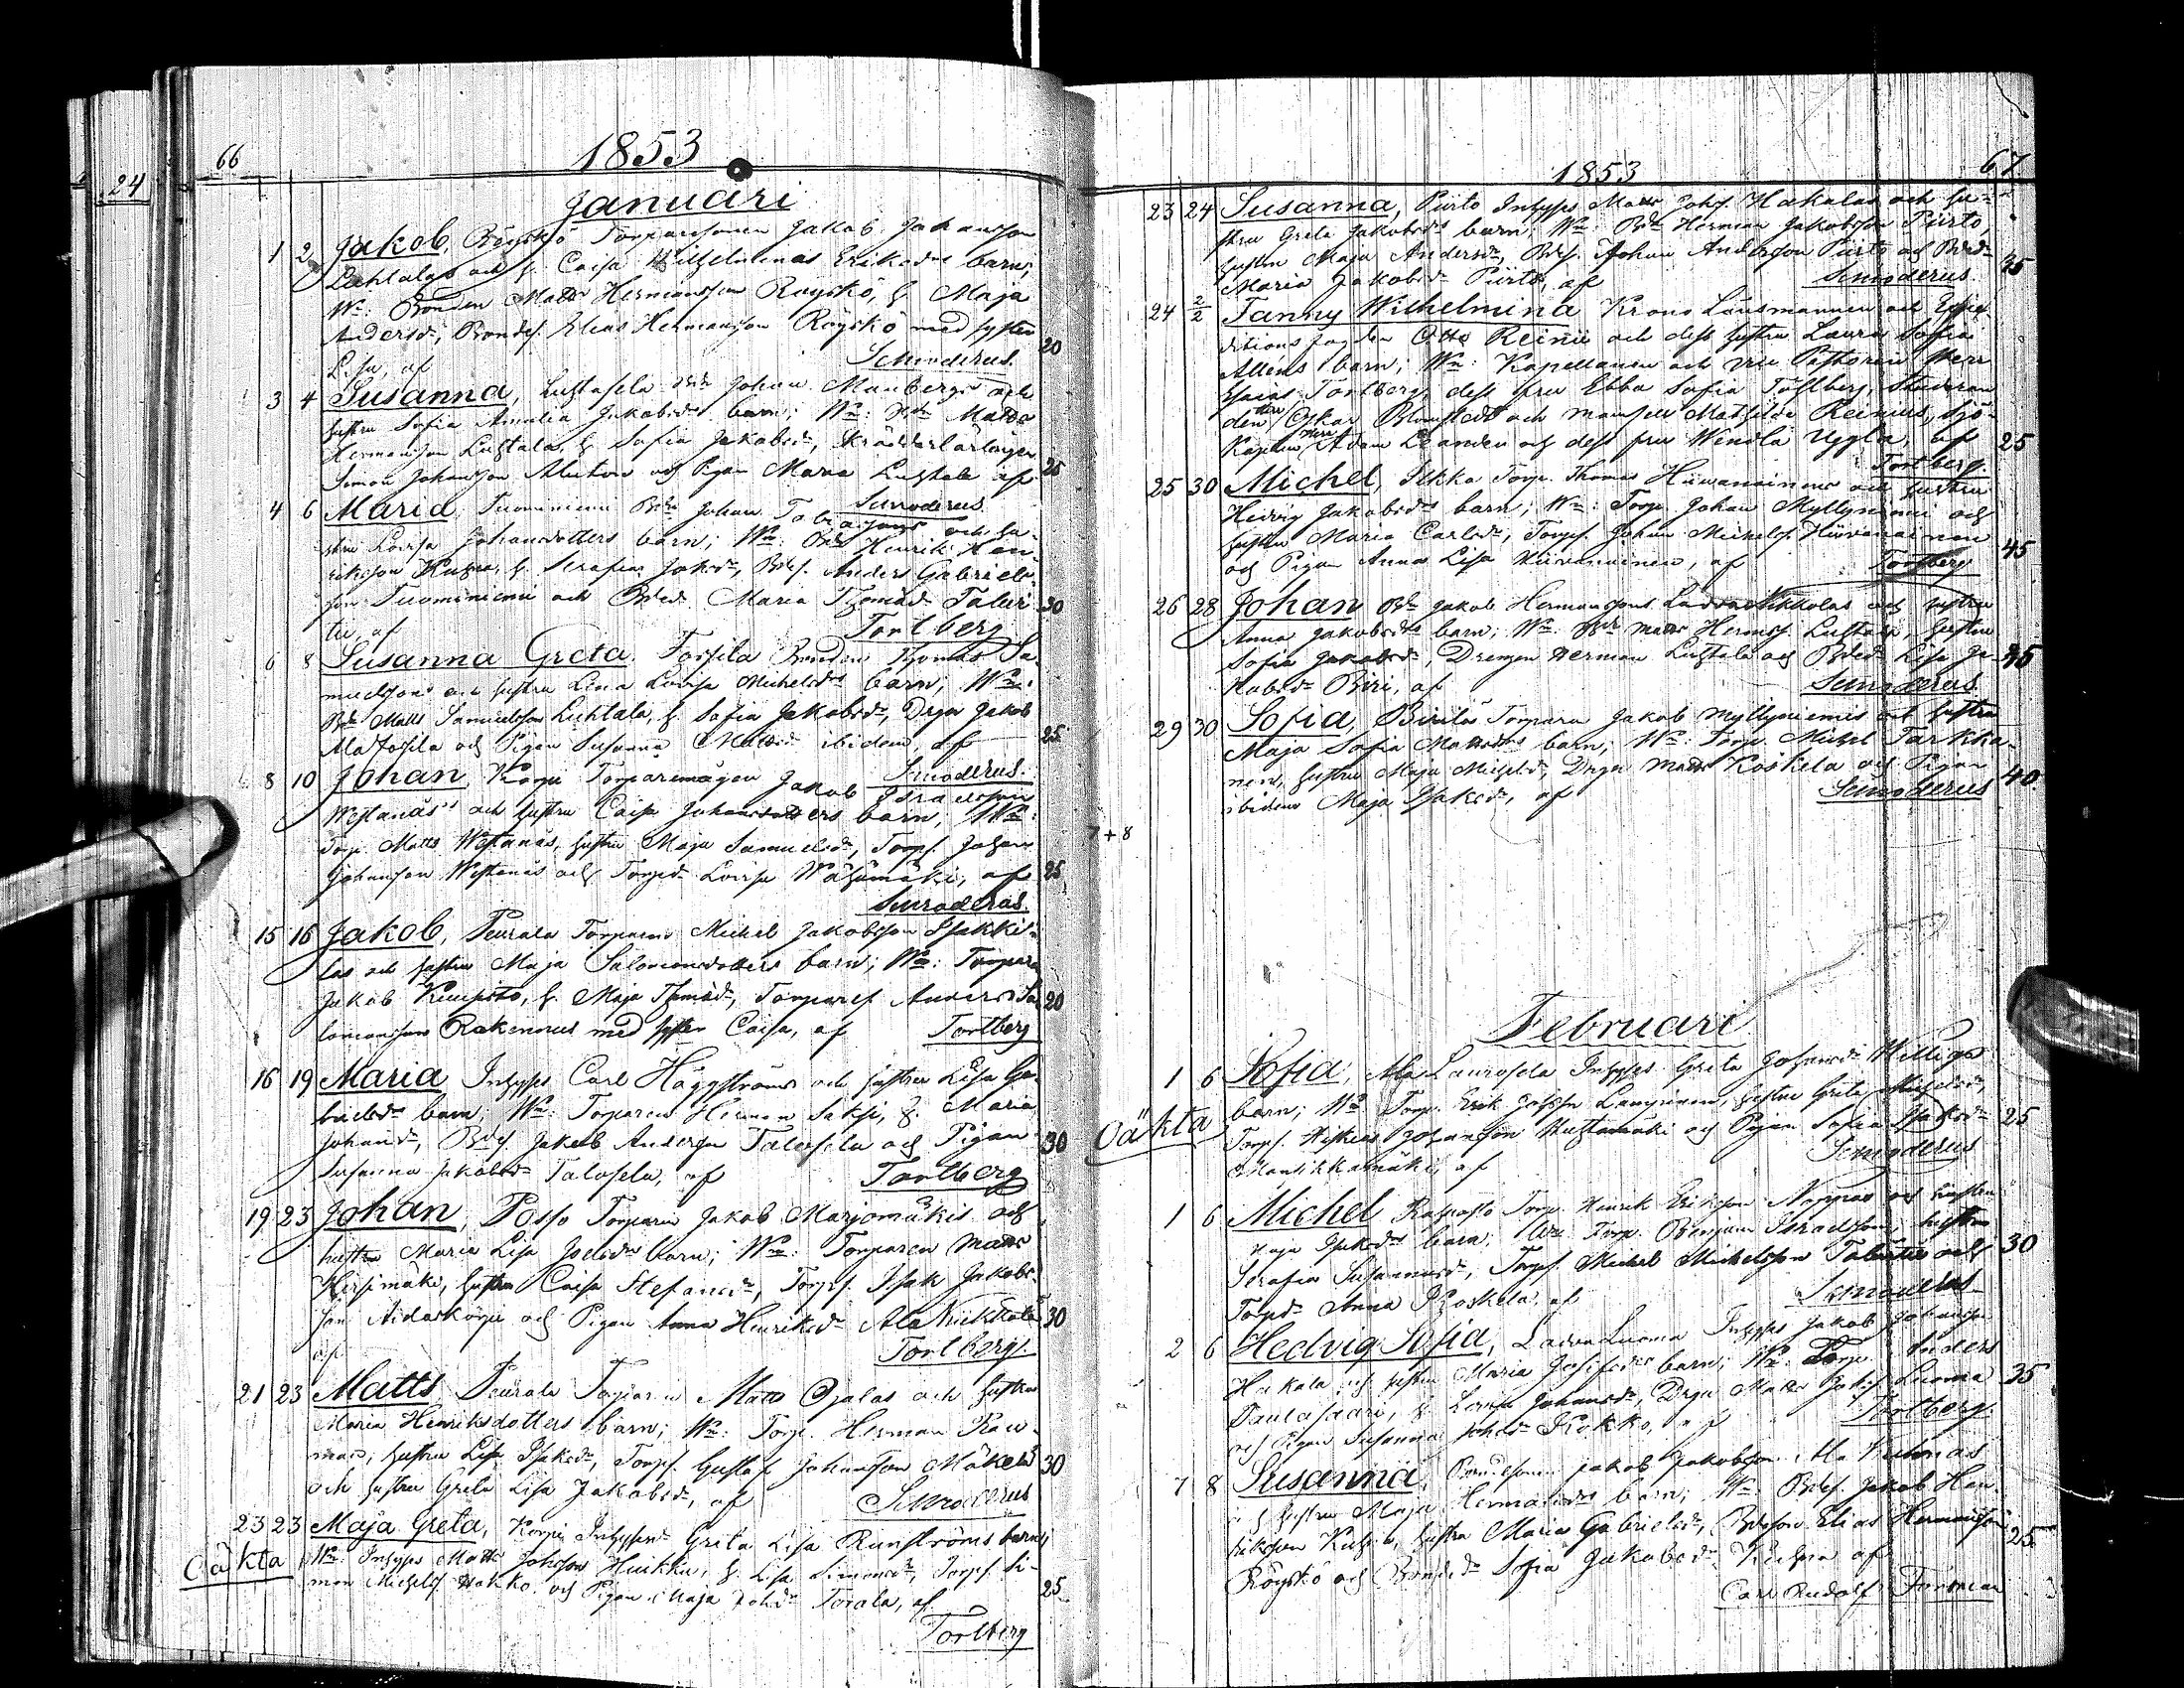 24
66
1853
Januari
1 2 Jakob, Röyskö Torparsonen Jakob Johansson
och h. Caisa Wilhelmina Eriksd:s barn;
Wn: Bonden Matts Hermansson Röyskö, h. Maja
Andersd:, Bondes. Elias Hermansson Röyskö med syster
Lisa, af Schroderus. 20
3 4 Susanna, Luhtasela Bdn Johan Manbergs och
hustru Sofia Amalia Jakobsd:s barn; Wn: Bdn Matts
Hermansson Luhtala, h. Sofia Jakobsd:, Skräddarlärlingen
Simon Johansson och Pigan Maria Luhtala af 25
Schroderus
4 6 Maria, Tuominiemi Bdn Johan Tobiassons och hu-
stru Lovisa Johansdotters barn; Wn: Bdn Henrik Hen-
riksson Kuhna, h. Serafia Jaksd:, Bdes. Anders Gabriels-
son Tuominiemi och Bded. Maria Thomasd: Talvi- 30
tie, af Torlberg
6 8 Susanna Greta. Forsila Bonden Thomas Sa-
muelssons och hustru Lena Lovisa Michelsd:s barn; Wn:
Bdn Matts Samuelsson Luhtala, h. Sofia Jakobsd:, Drgn Jakob
Ala Forsila och Pigan Susanna Mattsd: ibidem, af 25
Schroderus.
8 10 Johan, Korpi Torparemågen Jakob Israelsson
Westanäs' och hustru Caisa Johansdotters barn; Wn:
Torp. Matts Westanäs, hustru Maja Samuelsd:, Torps. Johan
Johansson Westanäs och Torpd: Lovisa Wähämäki, af 25
Schroderus.
15 16 Jakob, Peurala Torparen Michel Jakobsson Isakki-
las och hustru Maja Salomonsdotters barn; Wn: Torparen
Jakob Kuusisto, h. Maja Thomasd:, Torpares. Anders Sa- 20
lomonsson Rakennus med syster Caisa, af Torlberg
16 19 Maria Inhyses Carl Häggströms och hustru Lisa Ga-
brielsd:s barn; Wn: Torparen Herman Saksi, h. Maria
Johansd:, Bdes. Jakob Andersson Talosela och Pigan 30
Susanna Jakobsd: Talosela, af Torlberg
19 23 Johan, Posso Torparen Jakob Marjomäkis och
hustru Maria Lisa Joelsd:s barn; Wn: Torparen Matts
Hirsimäki, hustru Caisa Stefansd:, Torps. Isak Jakobs-
son Aidaskorpi och Pigan Anna Henriksd: Ala Niekkola 30
af Torlberg.
21 23 Matts, Peurala Torparen Matts Ojalas och hustru
Maria Henriksdotters barn; Wn: Torp. Herman Rau-
man, hustru Lisa Isaksd:, Torps. Gustaf Johansson Mäkelä 30
och hustru Greta Lisa Jakobsd:, af Schroderus
23 23 Maja Greta, Korpi Inhysesd: Greta Lisa Runströms barn;
Oäkta Wn: Inhyses Matts Johansson Huikku, h. Lisa Simonsd:, Torps. Si-
mon Michelss. Hakko och Pigan Maja Johsd: Torala, af 25
Torlberg
67
1853
23 24 Susanna, Piirto Inhyses Matts Johs. Hakalas och hu-
stru Greta Jakobsd:s barn; Wn: Bdn Herman Jakobsson Piirto,
hustru Maja Andersd:, Bdes. Johan Andersson Piirto och Bded: 35
Maria Jakobsd: Piirto, af Schroderus.
24 2/2 Fanny Wilhelmina Krono Länsmannen och Expe-
ditions fogden Otto Reinii och dess hustru Laura Sofia
Alléns barn; Wn: Kapellanen och vice Pastoren Herr
Esaias Torlberg, dess fru Ebba Sofia Torlberg, Studeran
den Herr Oskar Blomstedt och mamsell Mathilda Reinius, Sjö-
Kapten Herr Adam Leander och dess fru Wendla Uggla, af 25
Torlberg.
25 30 Michel, Ilkka Torp. Thomas Hiivanainens och hustru
Hedvig Jakobsd:s barn; Wn: Torp. Johan Myllyniemi och
hustru Maria Carlsd:, Torps. Johan Michelss. Hiivanainen
och Pigan Anna Lisa Hiivanainen, af Torlberg 45
26 28 Johan Bdn Jakob Hermanssons Ladvaniekkolas och hustru
Anna Jakobsd:s barn; Wn: Bdn Matts Hermss. Luhtala, hustru
Sofia Jakobsd:, Drengen Herman Luhtala och Bded: Lisa Ja- 45
kobsd: Biri, af Schroderus.
29 30 Sofia, Birilä Torparen Jakob Myllyniemis och hustru
Maja Sofia Mattsd:s barn; Wn: Torp. Michel Tarkka-
nen, hustru Maja Michelsd:, Drgn Matts Koskela och Pigan
ibidem Maja Isaksd:, af Schroderus 40.
7+8
Februari
1 6 Sofia, Ala Laurosela Inhyses Greta Johansd:
Oäkta barn; Wn: Torp. Erik Johsson, hustru Greta Michelsd:,
Torps. Johansson och Pigan Sofia Isaksd: 25
Mansikkamäki, af Schroderus
1 6 Michel Torp. Henrik Eriksson Noppas och hustru
Maja Isaksd:s barn; Wn: Torp. Benjam. Israelsson, hustru
Serafia Susannasd:, Torps. Michel Michelsson Talvitie och 30
Torpd: Anna Koskela, af Schroderus
2 6 Hedvig Sofia, Ladvaluoma Inhyses Jakob Johansson
Hakala och hustru Maria Josefsd:s barn; Wn: Torp. Anders
Paulasaari, h. Lovisa Johansd:, Drgn Matts Johss. Luoma 35
och Pigan Susanna Johsd: Kokko, af Torlberg.
7 8 Susanna, Bondesonen Jakob Jakobsson Ala
och hustru Maja Hermansd:s barn; Wn: Bdes. Jakob Hen-
riksson Kuhna, hustru Maria Gabrielsd:, Bdesson Elias Hermansson 25
Röyskö och Bonded: Sofia Jakobsd: Kuhna af
Carl Rudolf Forsman